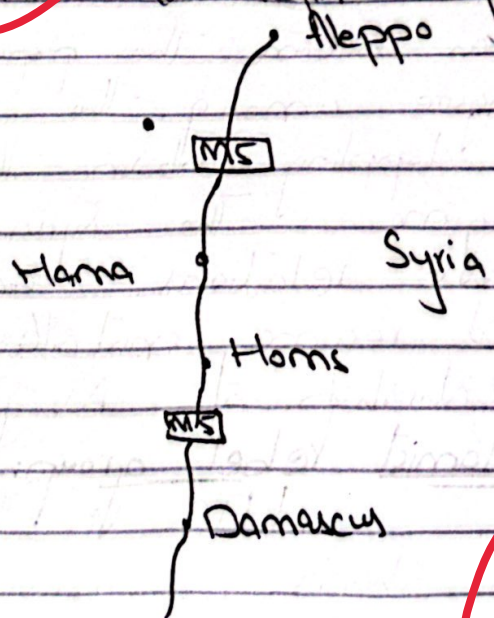 Aleppo
M5
Hama
Syria
Homs
M5
Damascus